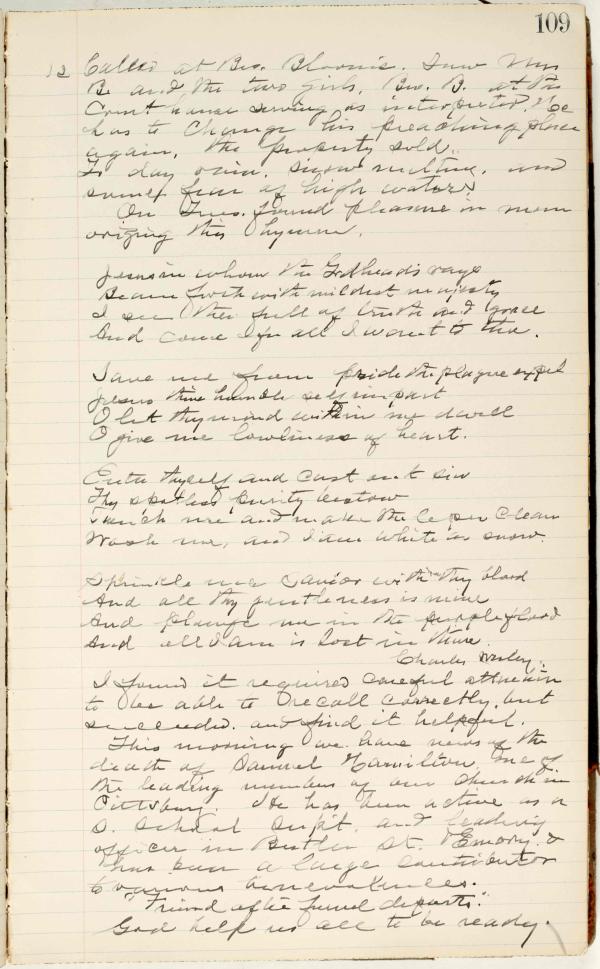 109
12 Called at Bro. Bloom's. Saw Mrs
B. and the two girls, Bro. B. at the
Court house serving as interpreter. He
has to change his preaching place
again, the property sold.
To day rain, snow melting, and
some fear of high waters.
On Tues. found pleasure in mem
orizing this hymn.
Jesus in whom the Godhead's rays
Beam forth with mildest majesty
I see thee full of truth and grace
And come for all I want to thee.
Save me from pride the plague expel
Jesus thine humble self impart
O let thy mind within me dwell
O give me lowliness of heart.
Enter thyself and cast out sin
Thy spotless purity bestow
Touch me and make the leper clean
Wash me, and I am white as snow.
Sprinkle me Savior with thy blood
And all thy gentleness is mine
And plunge me in the purple flood
And all I am is lost in thine.
Charles Wesley.
I found it required careful attention
to be able to recall correctly, but
succeeded, and find it helpful.
This morning we have news of the
death of Samuel Hamilton, one of
the leading members of our church in
Pittsburg. He has been active as a
S. School Supt. and leading
officer in Butler St. Emory, &
has been a large contributor
to various benevolences.
"Friend after friend departs."
God help us all to be ready.